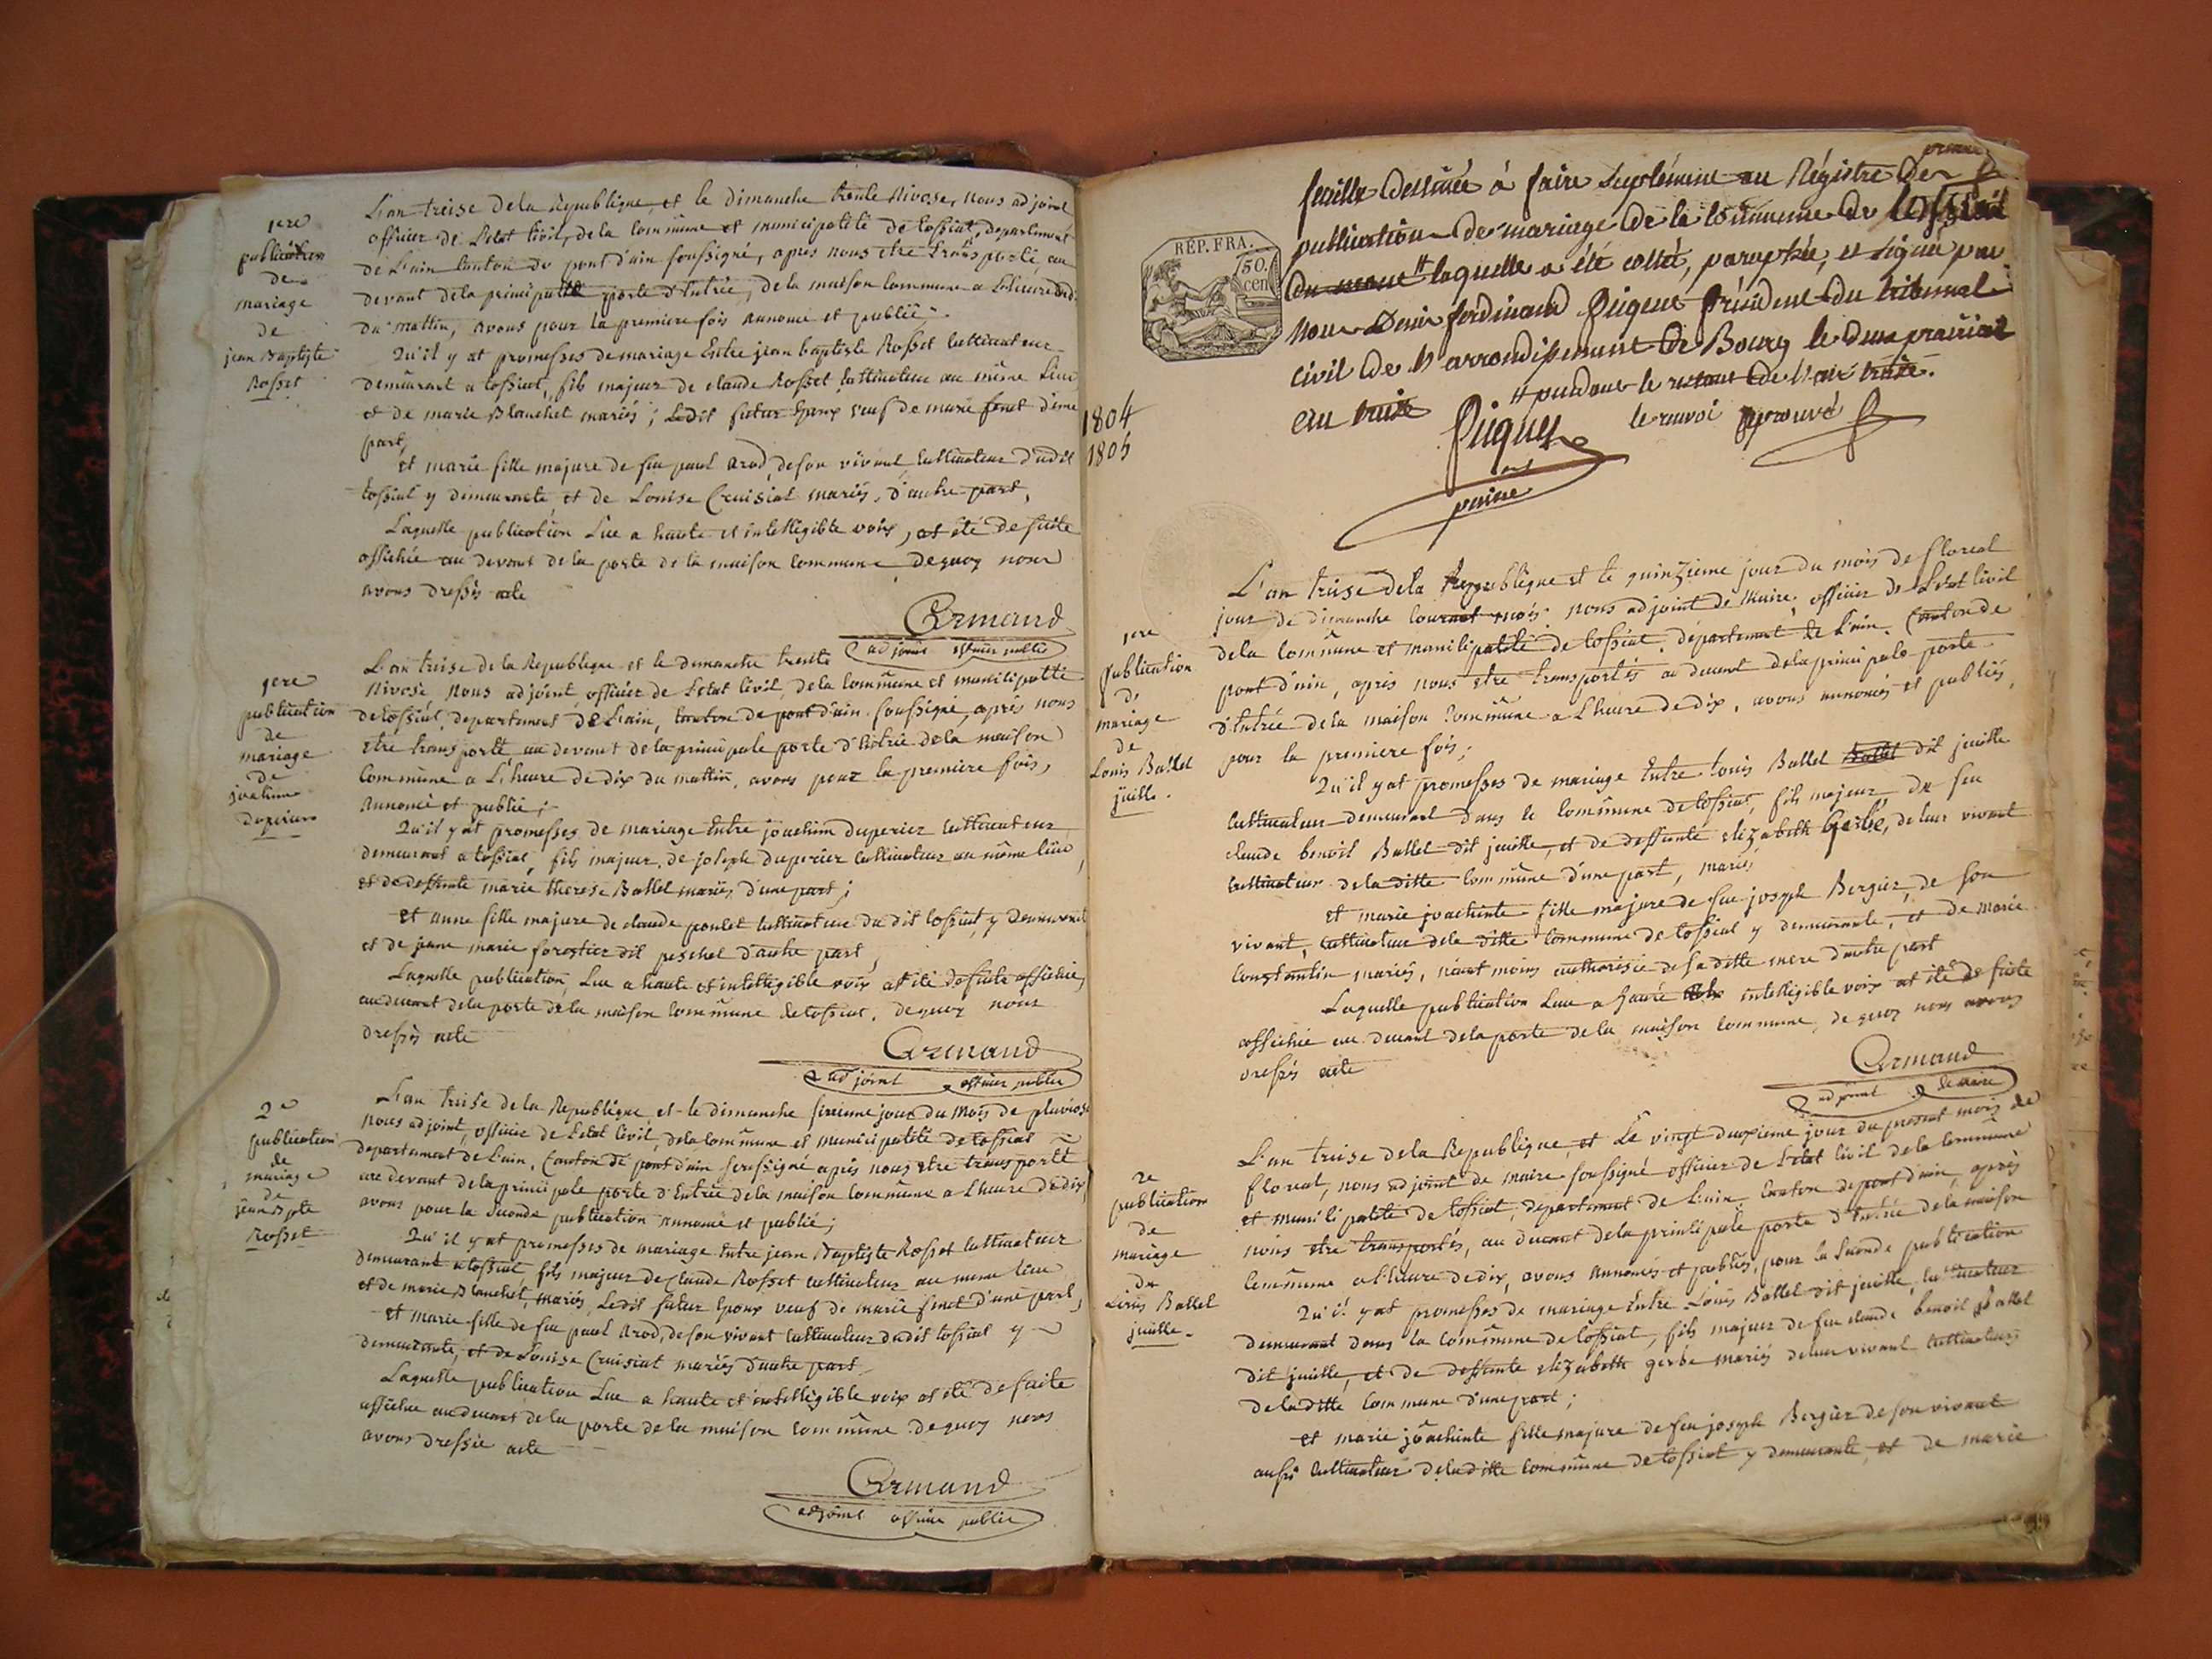 1ere
publication
de
mariage
de
jean Baptiste
Rosset
L'an treise de la Republique, et le dimanche trente Nivose, nous adjoint
officier de l'etat livil, de la commune et municipalité de tossiat, departement
de L'ain Canton de pont d'ain soussigné, apres nous etre transporté au
devant de la principalle porte d'Entrée, de la maison commune a L'heure
du mattin, avons pour la premiere fois annoncé et publié
Qu'il y at promesses de mariage Entre jean baptiste Rosset cultivateur
demeurant a tossiat, fils majeur de claude Rosset cultivateur au même Lieu
et de marie Blanchet mariés; Ledit futur Epoux veuf de marie d'une
part,
et marie fille majure de feu paul arod, de son vivant cultivateur dudit
tossiat y demeurante et de Louise Cruisiat mariés, d'autre part,
Laquelle publication Lue a haute et intelligible voix, at été de suite
affichée au devant de la porte de la maison commune dequoy nous
avons dressés acte
Armand
adjoint officier public
1ere
publication
de
mariage
de
joachim
duperier
L'an treise de la Republique et le dimanche trente
Nivose Nous adjoint, officier de L'etat livil, dela commune et municipalité
de tossiat, departement de L'ain, canton de pont d'ain soussigné, apres nous
etre transporté au devant de la principale porte d'Entrée de la maison
commune a L'heure de dix du mattin, avons pour la premiere fois,
annoncé et publié;
Qu'il y at promesses de mariage Entre joachim duperier cultivateur
demeurant a tossiat, fils majeur, de joseph duperier cultivateur au même lieu,
et de deffunte marie therese Ballet mariés, d'une part;
et anne fille majure de claude poulet cultivateur du dit tossiat, y demeurant
et de jeane marie forestier dit peschet d'autre part,
Laquelle publication, Lue a haute et intelligible voix at été de suite affichée,
au devant dela porte de la maison commune de tossiat, dequoy nous
dressés acte
Armand
adjoint officier public
2e
publication
de
mariage
de
jean Bpte
Rosset
L'an treise de la Republique, et le dimanche sixieme jour du Mois de pluviose
nous adjoint, officier de L'etat livil, dela commune et municipalité de tossiat
departement de L'ain, Canton de pont d'ain soussigné apres nous etre transporté
au devant dela principale porte d'Entrée dela maison commune a L'heure de dix,
avons pour la seconde publication annoncé et publié;
Qu'il y at promesses de mariage Entre jean Baptiste Rosset cultivateur
demeurant a tossiat, fils majeur de Claude Rosset cultivateur au meme Lieu
et de marie Blanchet, mariés, Ledit futur Epoux veuf de marie d'une part,
et marie fille de feu paul arod, de son vivant cultivateur dudit tossiat y
demeurante, et de Louise Cruisiat mariés d'autre part
Laquelle publication Lue a haute et intelligible voix at été de suite
affichée au devant de la porte de la maison commune dequoy nous
avons dressée acte
Armand
adjoint officier public
1804
1805
RÉP. FRA.
50.
cen
feuille destinée à faire suplément au Régistre des
publications de mariage de la commune de tossiat
laquelle a été cottée, paraphée, et signée par
nous Denis ferdinand Piquet Président du tribunal
civil de l'arrondissement de Bourg le deux prairial
an treise
# pendant le restant de l'an treise.
le renvoi aprouvé
Piquet
1ere
publication
de
mariage
de
Louis Ballet
juille.
L'an treise dela Republique et le quinzieme jour du mois de floreal
jour de dimanche courant mois. nous adjoint de Maire, officier de L'etat livil
dela commune et municipalité de tossiat, departement de L'ain, Canton de
pont d'ain, apres nous etre transportés au devant dela principale porte
d'Entrée dela maison commune a L'heure de dix, avons annoncés et publiés,
pour la premiere fois;
Qu'il y at promesses de mariage Entre Louis Ballet dit juille
cultivateur demeurant dans la commune de tossiat, fils majeur de feu
claude benoit Ballet dit juille, et de deffunte elizabeth Gerbe, de leur vivant
cultivateur dela ditte commune d'une part, mariés
et marie joachinte fille majure de feu joseph Bergier, de son
vivant, cultivateur dela ditte commune de tossiat y demeurante, et de marie
Constantin mariés, néantmoins authorisée de sa ditte mere d'autre part
Laquelle publication Lue a haute intelligible voix at été de suite
affichée au devant dela porte dela maison commune, de quoy nous avons
dressés acte
Armand
adjoint de maire
2e
publication
de
mariage
de
Louis Ballet
juille.
L'an treise dela Republique, et Le vingt deuxieme jour du present mois de
floreal, nous adjoint de maire soussigné officier de L'etat livil de la commune
et municipalité de tossiat, departement de L'ain, canton de pont d'ain, après
nous etre transportés, au devant dela principale porte d'Entrée dela maison
commune a l'heure de dix, avons annoncés et publiés, pour la seconde publication
Qu'il y at promesses de mariage Entre Louis Ballet dit juille, cultivateur
demeurant dans la commune de tossiat, fils majeur de feu claude benoit Ballet
dit juille, et de deffunte elizabeth gerbe mariés deleur vivant cultivateurs
dela ditte commune d'une part;
et marie joachinte fille majure de feu joseph Bergier de son vivant
aussi cultivateur dela ditte commune de tossiat y demeurante, et de marie